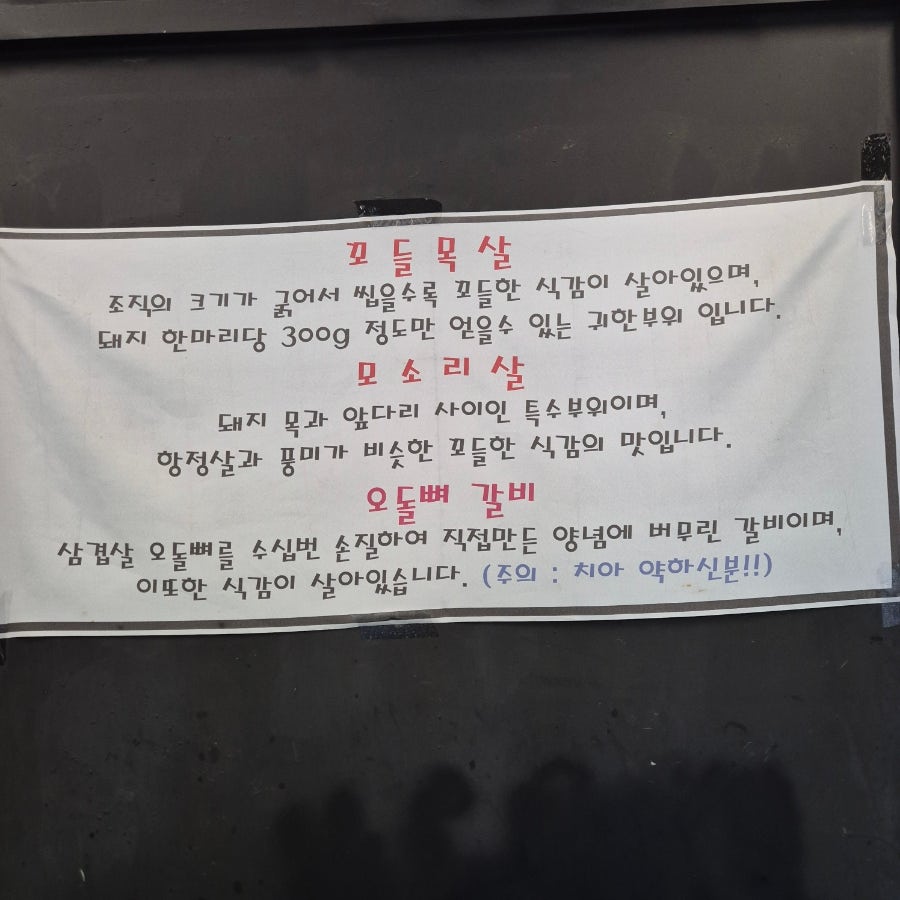 꼬들목살
조직의 크기가 굵어서 씹을수록 꼬들한 식감이 살아있으며,
돼지 한마리당 300g 정도만 얻을수 있는 귀한부위 입니다.
모소리살
돼지 목과 앞다리 사이인 특수부위이며,
항정살과 풍미가 비슷한 꼬들한 식감의 맛입니다.
오돌뼈 갈비
삼겹살 오돌뼈를 수십번 손질하여 직접만든 양념에 버무린 갈비이며,
이또한 식감이 살아있습니다. (주의 : 치아 약하신분!!)